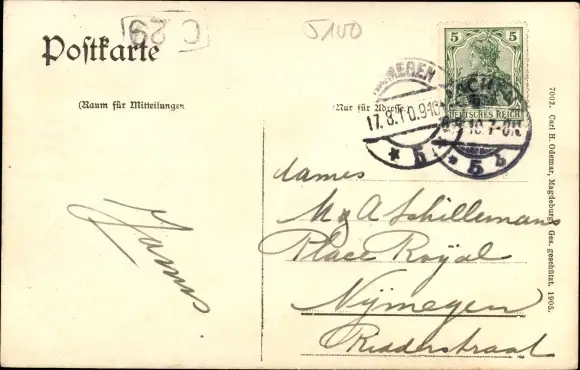 Postkarte
C 29
5100
(Raum für Mitteilungen
Nur für Adresse
5 5
DEUTSCHES REICH
17.8.10.9-10
* 5
* 5 b
dames
M & A Schillemans
Place Royal
Nijmegen
Ridderstraat
7002. Carl H. Odemar, Magdeburg. Ges. geschützt. 1905.